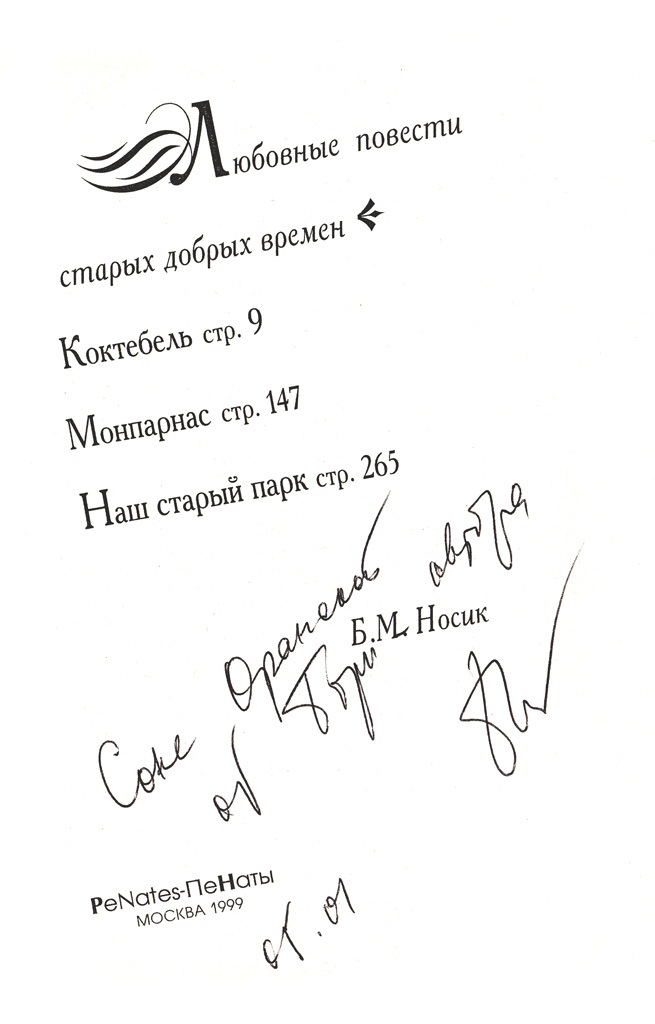 Любовные повести
старых добрых времен
Коктебель стр. 9
Монпарнас стр. 147
Наш старый парк стр. 265
Соне Оранской
от автора
Б.М. Носик
PeNates-ПеНаты
МОСКВА 1999
05.01